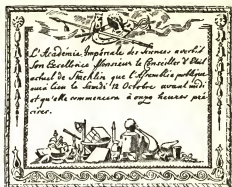 L'Académie Impériale des Sciences avertit
Son Excellence Monsieur le Conseiller d'Etat
actuel de Stæhlin que l'Assemblée publique
aura lieu le Samdi 12 Octobre avant midi
et qu'elle commencera à onze heures pré-
cises.